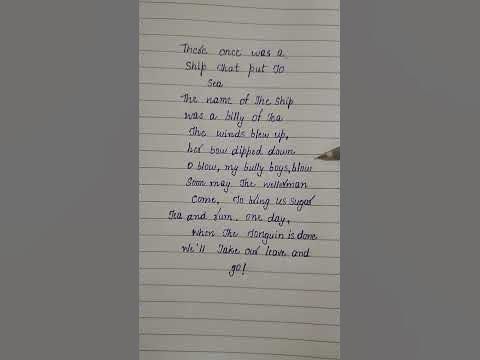 There once was a
Ship that put To
Sea
The name of The Ship
was a billy of Tea
The winds blew up,
her bow dipped down
O blow, my bully boys, blow
Soon may The wellerman
Come, To bring us sugar
Tea and rum. One day,
when The Tonguin is done
We'll Take our leave and
go!